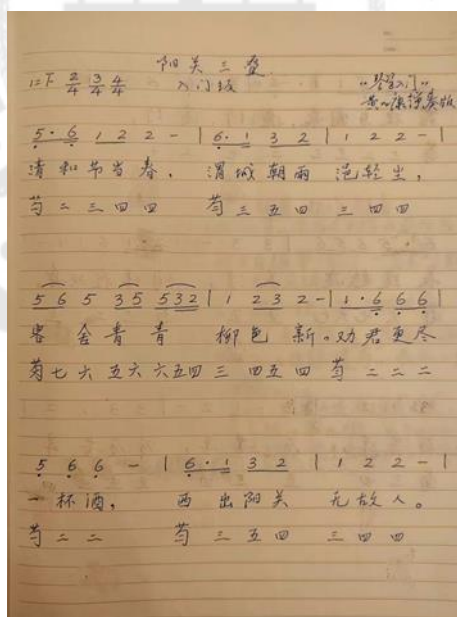 阳关三叠
入门版
2/4 3/4 4/4
"琴谱入门"
5·6 1 2 2 - | 6·1 3 2 | 1 2 2 - |
清和节当春, 渭城朝雨 浥轻尘,
芍二三四四 芍三五四 三四四
5 6 5 3 5 5 3 2 | 1 2 3 2 - | 1·6 6 6 |
客舍青青 柳色新。劝君更尽
芍七六五六六五四三 四五四 芍二二二
5 6 6 - | 6·1 3 2 | 1 2 2 - |
一杯酒, 西出阳关 无故人。
芍二二 芍三五四 三四四